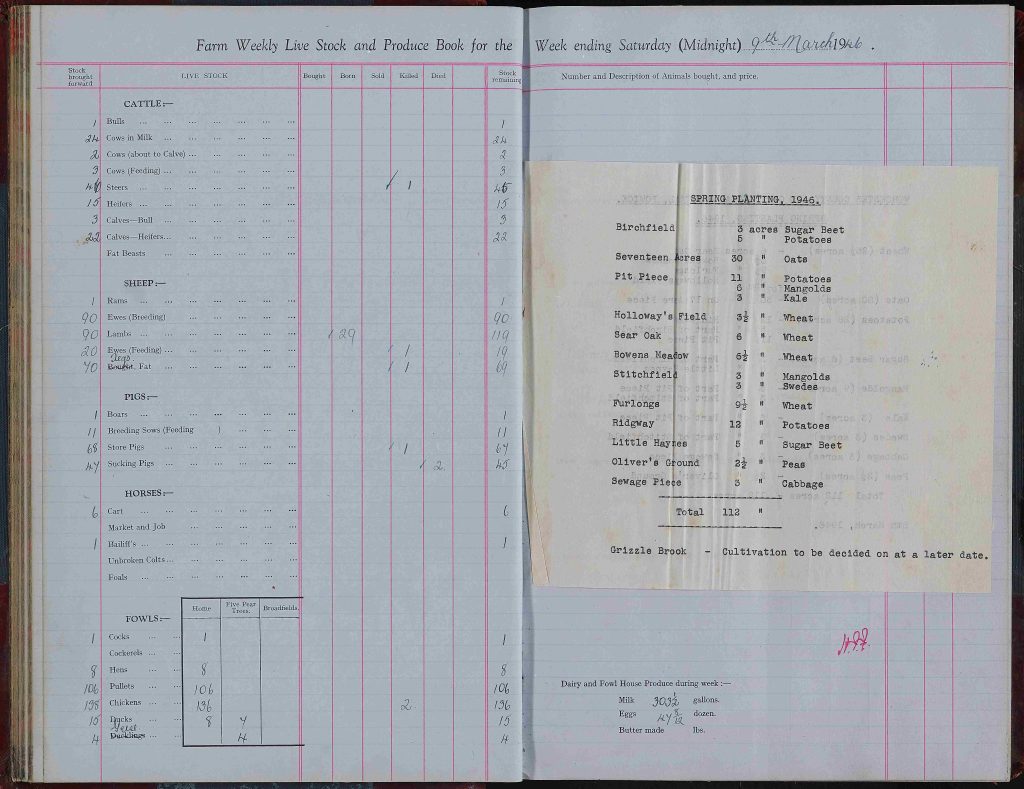 Farm Weekly Live Stock and Produce Book for the Week ending Saturday (Midnight) 9th March 1946.
Stock brought forward LIVE STOCK Bought Born Sold Killed Died Stock remaining Number and Description of Animals bought, and price.
CATTLE:—
1 Bulls ... ... ... ... ... ... ... 1
24 Cows in Milk ... ... ... ... ... ... 24
2 Cows (about to Calve) ... ... ... ... ... 2
3 Cows (Feeding) ... ... ... ... ... ... 3
46 Steers ... ... ... ... ... ... ... 1 45
15 Heifers ... ... ... ... ... ... ... 15
3 Calves—Bull ... ... ... ... ... ... 3
22 Calves—Heifers... ... ... ... ... ... 22
Fat Beasts ... ... ... ... ... ...
SHEEP:—
1 Rams ... ... ... ... ... ... ... 1
90 Ewes (Breeding) ... ... ... ... ... 90
90 Lambs ... ... ... ... ... ... ... 29 119
20 Ewes (Feeding) ... ... ... ... ... ... 1 19
Tegs
70 Fat ... ... ... ... ... ... 1 69
PIGS:—
1 Boars ... ... ... ... ... ... ... 1
11 Breeding Sows (Feeding ) ... ... ... 11
68 Store Pigs ... ... ... ... ... ... 1 67
47 Sucking Pigs ... ... ... ... ... ... 2 45
HORSES:—
6 Cart ... ... ... ... ... ... ... 6
Market and Job ... ... ... ... ...
1 Bailiff's ... ... ... ... ... ... ... 1
Unbroken Colts ... ... ... ... ... ...
Foals ... ... ... ... ... ... ...
FOWLS:—
Home Five Pear Trees. Broadfields.
1 Cocks ... ... 1 1
Cockerels ... ...
8 Hens ... ... 8 8
106 Pullets ... ... 106 106
138 Chickens ... ... 136 2 136
15 Ducks ... ... 8 7 15
Geese
4 Ducklings ... ... 4 4
SPRING PLANTING, 1946.
Birchfield 3 acres Sugar Beet
5 " Potatoes
Seventeen Acres 30 " Oats
Pit Piece 11 " Potatoes
6 " Mangolds
3 " Kale
Holloway's Field 3½ " Wheat
Sear Oak 6 " Wheat
Bowens Meadow 6½ " Wheat
Stitchfield 3 " Mangolds
3 " Swedes
Furlongs 9½ " Wheat
Ridgway 12 " Potatoes
Little Haynes 5 " Sugar Beet
Oliver's Ground 2½ " Peas
Sewage Piece 3 " Cabbage
Total 112 "
Grizzle Brook - Cultivation to be decided on at a later date.
Dairy and Fowl House Produce during week:—
Milk 303½ gallons.
Eggs 47 dozen.
Butter made lbs.